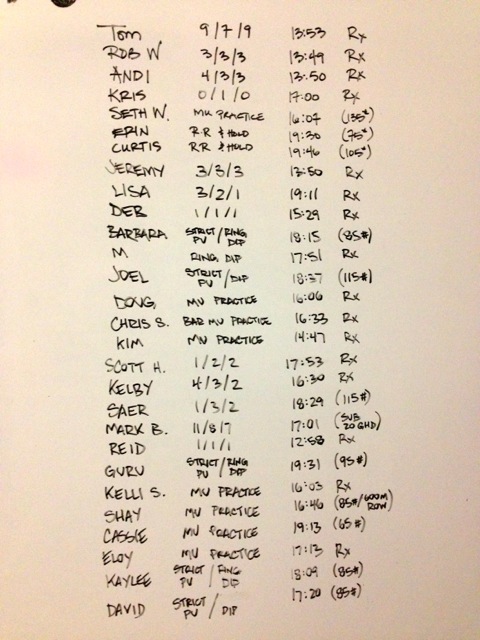 TOM 9/7/9 13:53 Rx
ROB W 3/3/3 13:49 Rx
ANDI 4/3/3 13:50 Rx
KRIS 0/1/0 17:00 Rx
SETH W. MU PRACTICE 16:07 (135#)
ERIN RR & HOLD 19:30 (75#)
CURTIS RR & HOLD 19:46 (105#)
JEREMY 3/3/3 13:50 Rx
LISA 3/2/1 19:11 Rx
DEB 1/1/1 15:29 Rx
BARBARA STRICT PU / RING DIP 18:15 (85#)
M RING DIP 17:51 Rx
JOEL STRICT PU / DIP 18:37 (115#)
DOUG MU PRACTICE 16:06 Rx
CHRIS S. BAR MU PRACTICE 16:33 Rx
KIM MU PRACTICE 14:47 Rx
SCOTT H. 1/2/2 17:53 Rx
KELBY 4/3/2 16:30 Rx
SAER 1/3/2 18:29 (115#)
MARK B. 11/8/7 17:01 (SUB 20 GHD)
REID 1/1/1 12:58 Rx
GURU STRICT PU / RING DIP 19:31 (95#)
KELLI S. MU PRACTICE 16:03 Rx
SHAY MU PRACTICE 16:46 (85#/600M ROW)
CASSIE MU PRACTICE 19:13 (65#)
ELOY MU PRACTICE 17:13 Rx
KAYLEE STRICT PU / RING DIP 18:09 (85#)
DAVID STRICT PU / DIP 17:20 (85#)